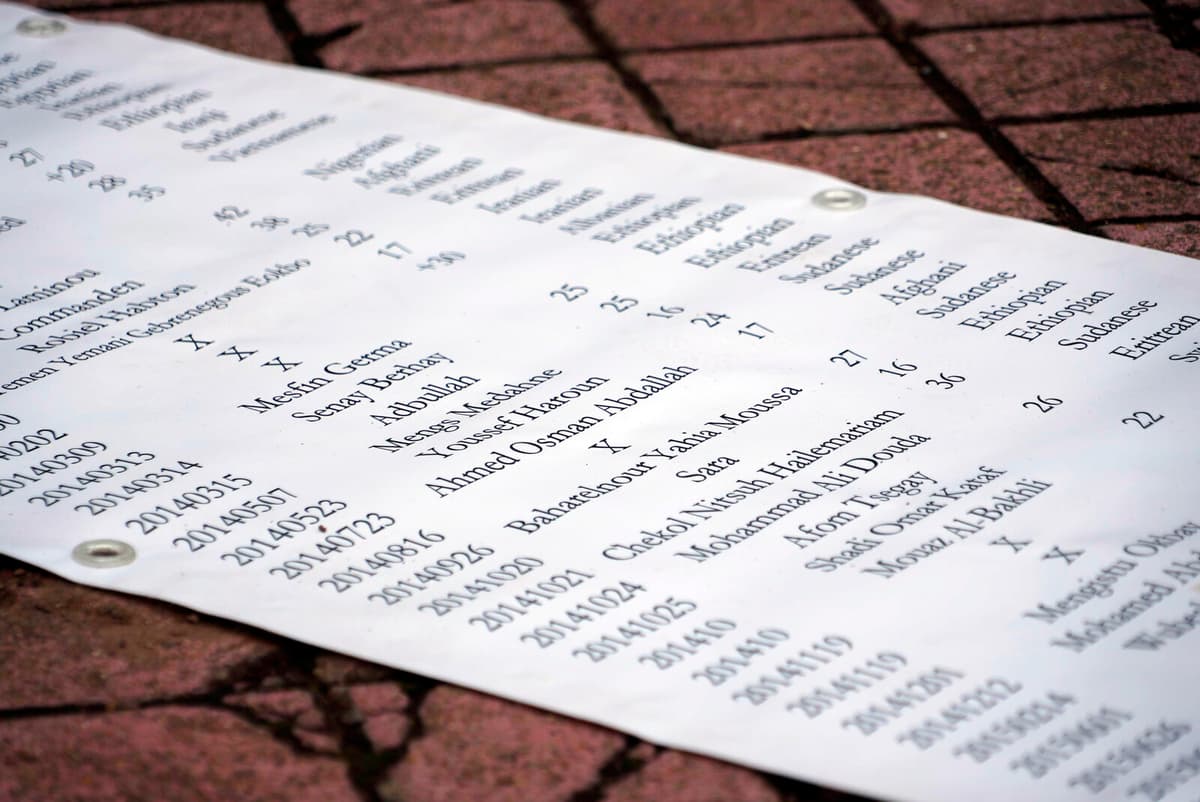 27 Ethiopian
+20 Iraqi
28 Sudanese
35 Vietnamese
Laminou 42 Nigerian
Commanden 38 Afghani
Robiel Habton 25 Eritrean
Yemani Gebrenegous Eokbo 22 Eritrean
X 17 Iranian
X +30 Iranian
20140309 X Albanian
20140313 Mesfin Germa Ethiopian
20140314 Senay Berhay 25 Ethiopian
20140315 Adbullah 25 Ethiopian
20140507 Mengs Medahne 16 Eritrean
20140523 Youssef Haroun 24 Sudanese
20140723 Ahmed Osman Abdallah 17 Sudanese
20140816 X Afghani
20140926 Baharelnour Yahia Moussa 27 Sudanese
20141020 Sara 16 Ethiopian
20141021 Chekol Nitsuh Hailemariam 36 Ethiopian
20141024 Mohammad Ali Douda Sudanese
20141025 Afom Tsegay 26 Eritrean
201410 Shadi Omar Kataf
201410 Mouaz Al-Bakhli 22
20141119 X
20141119 X
20141201 Mengistu
20141222 Mohamed
20150214
20150601
20150626